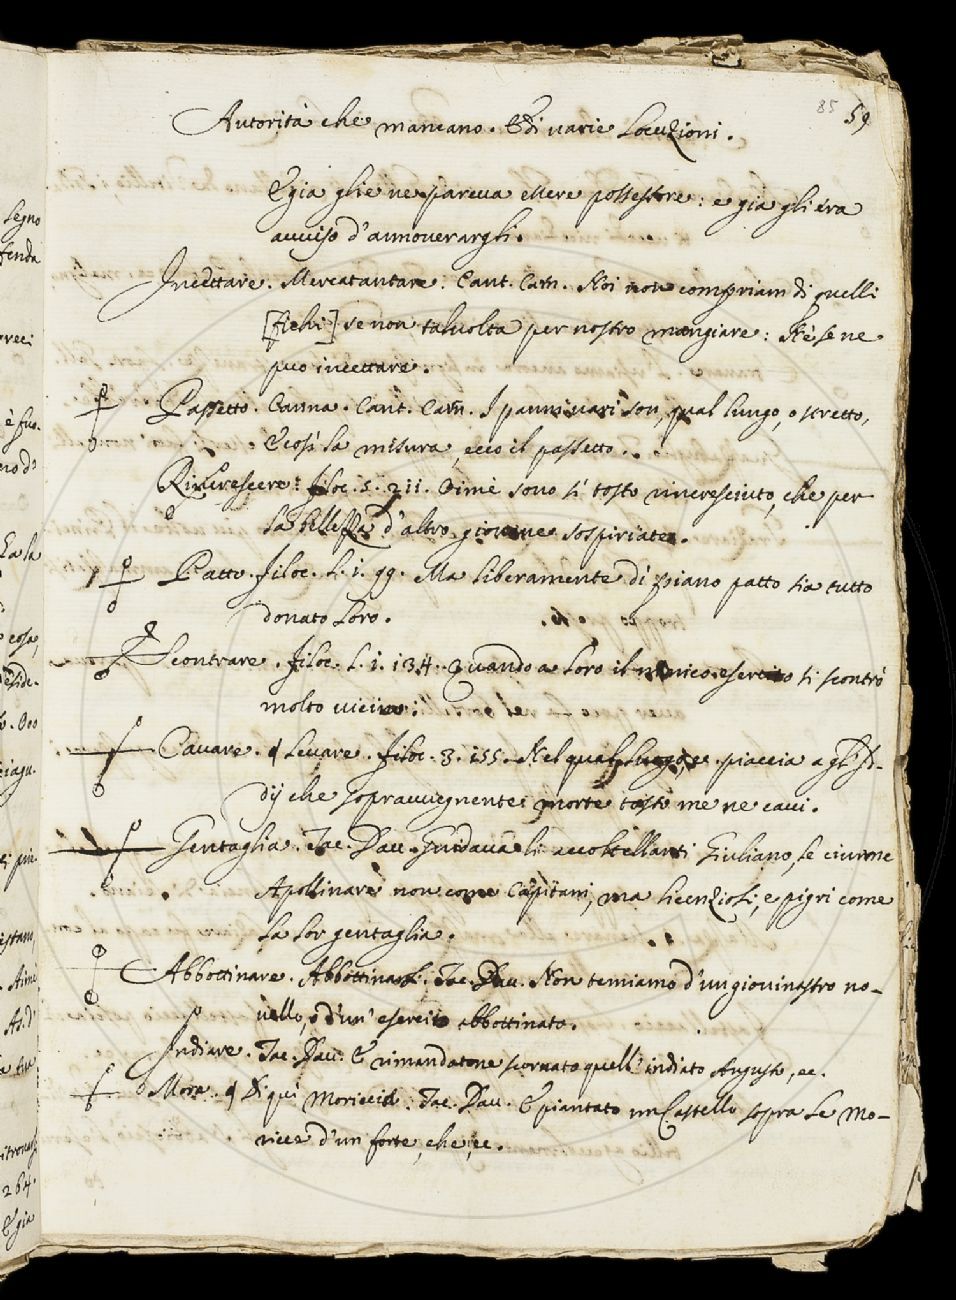 85 59
Autorità che mancano. E di varie Locuzioni.
E già glie ne pareva essere possessore: e già gli era
avviso d'annoverargli.
Incettare. Mercatantare. Cant. Carn. Noi non compriam di quelli
[fichi] se non talvolta per nostro mangiare: Nè se ne
può incettare.
Passetto. Canna. Cant. Carn. I panni vari son, qual lungo, o stretto,
E così la misura, ecco il passetto.
Rincrescere. Filoc. 5. 211. Oimè sono sì tosto rincresciuto, che per
la bellezza d'altro giovine sospiriate.
Patto. Filoc. L. 1. 99. Ma liberamente di piano patto sia tutto
donato loro.
Scontrare. Filoc. L. 1. 134. Quando a loro il nimico esercito si scontrò
molto vicino:
Cavare. Levare. Filoc. 3. 155. Nel qual luogo, piaccia a gl'Id-
dij che sopravvegnente morte tosto me ne cavi.
Gentaglia. Tac. Dav. Guidava li accoltellanti Giuliano, le ciurme
Apollinare non come Capitani, ma licenziosi, e pigri come
la lor gentaglia.
Abbottinare. Abbottinarsi. Tac. Dav. Non temiamo d'un giovinastro no-
vello, o d'un' esercito abbottinato.
Indiare. Tac. Dav. E rimandatone scornato quell' indiato Augusto, ec.
Mora. Di qui Moriccia. Tac. Dav. E piantato un Castello sopra le Mo-
ricce d'un forte, che, ec.
segno
fenda
è fuo-
La la
cosa,
Aime
264.
E già